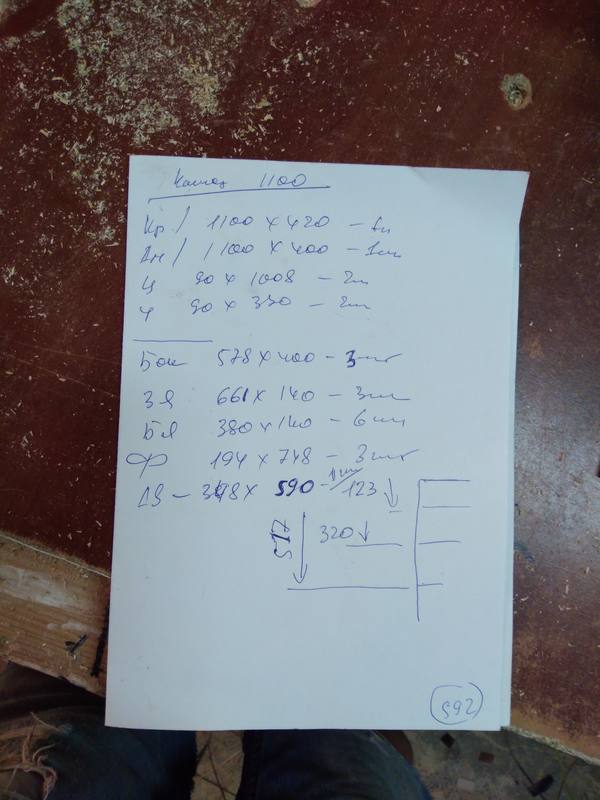 Комод 1100
Кр / 1100 x 420 - 1шт
Дн / 1100 x 400 - 1шт
Ц 90 x 1008 - 2шт
Ц 90 x 330 - 2шт
Бок 578 x 400 - 3шт
ЗЯ 661 x 140 - 3шт
БЯ 380 x 140 - 6шт
Ф 194 x 748 - 3шт
ДВ - 348 x 590 - 1шт
123
320
517
592